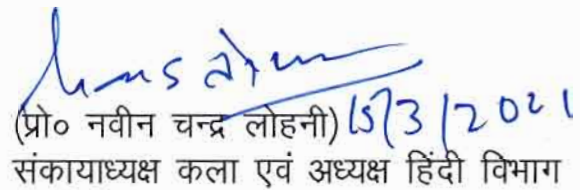 (प्रो० नवीन चन्द्र लोहनी) 15/3/2021
संकायाध्यक्ष कला एवं अध्यक्ष हिंदी विभाग